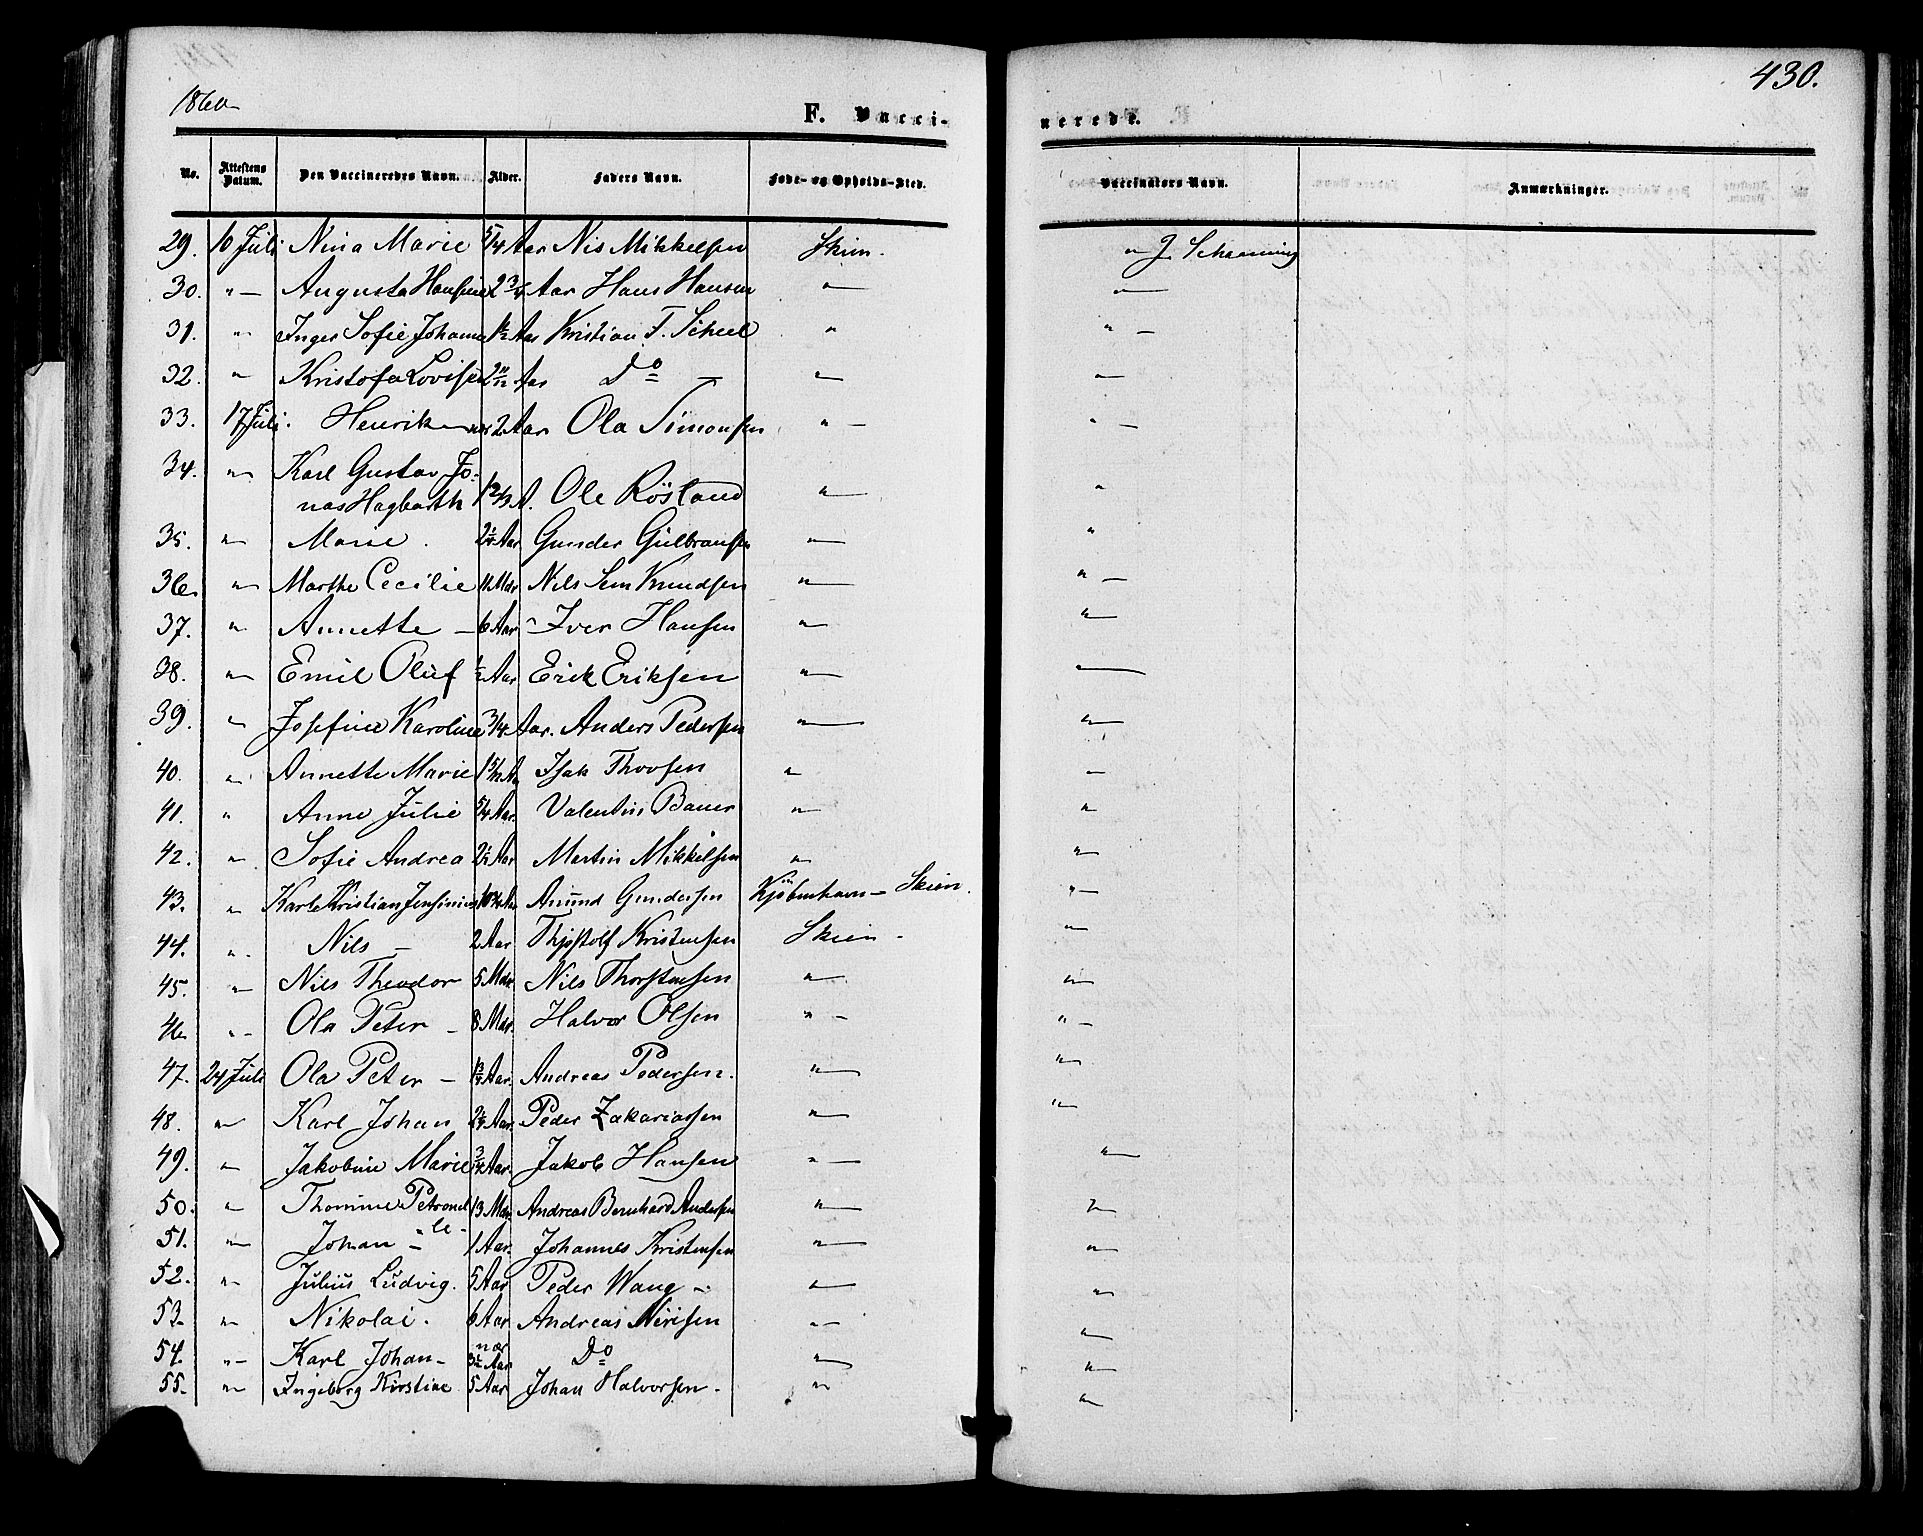 430.
1860
F. Vacci-
nerede.
No. Attestens Datum. Den Vaccineredes Navn. Alder. Faders Navn. Føde- og Opholds-Sted. Vaccinators Navn. Anmærkninger.
29. 16 Juli Nina Marie 5/4 Aar Nis Mikkelsen Skien. J. Schanning
30. " — Augusta Hansine 2 3/4 Aar Hans Hansen " — —
31. " Inger Sofie Johanne 1½ Aar Kristian F. Scheel " " —
32. " Kristofa Lovise 2 11/12 Aar Do — " — " —
33. 17 Juli. Henrik — nær 2 Aar Ola Simonsen " — " —
34. " Karl Gustav Jo-
nas Hagbarth 1 2/3 A. Ole Røsland " — "
35. " Marie. 2¼ Aar Gunder Gulbransen " — "
36. " Marthe Cecilie 11 Mdr Nils Sem Knudsen " — " —
37. " Annette — 6 Aar Iver Hansen " — " —
38. " Emil Oluf ½ Aar Erik Eriksen " — " —
39. " Josefine Karoline 3/4 Aar. Anders Pedersen " — " —
40. " Annette Marie 1 5/12 A Isak Thovsen " " —
41. " Anne Julie 5/4 Aar. Valentin Bauer " — "
42. " Sofie Andrea 2½ Aar Martin Mikkelsen " " —
43. " Karl Kristian Jensinius 10¾ Aar Amund Gundersen Kjöbenhavn — Skien. " —
44. " Nils — 2 Aar Thjostolf Kristensen Skien — " —
45. " Nils Theodor 5 Mdr Nils Thorstensen " — " —
46 " — Ola Peter — 8 Mdr. Halvor Olsen " — " —
47. 24 Juli Ola Peter — 1¾ Aar. Andreas Pedersen. " — " —
48. " Karl Johan 2¼ Aar. Peder Zakariassen " — " —
49. " Jakobine Marie ¾ Aar. Jakob Hansen " — " —
50. " Thomine Petronel-
le — 13 Mdr. Andreas Bernhard Andersen " — " —
51. " Johan — 1 Aar. Johannes Kristensen " — " —
52. " Julius Ludvig. 5 Aar Peder Wang — " — " —
53. " Nikolai. 6 Aar Andreas " — " —
54. " — Karl Johan — nær 3½ Aar Do " — " —
55. " — Ingeborg Kirstine 5 Aar Johan Halvorsen. " — " —